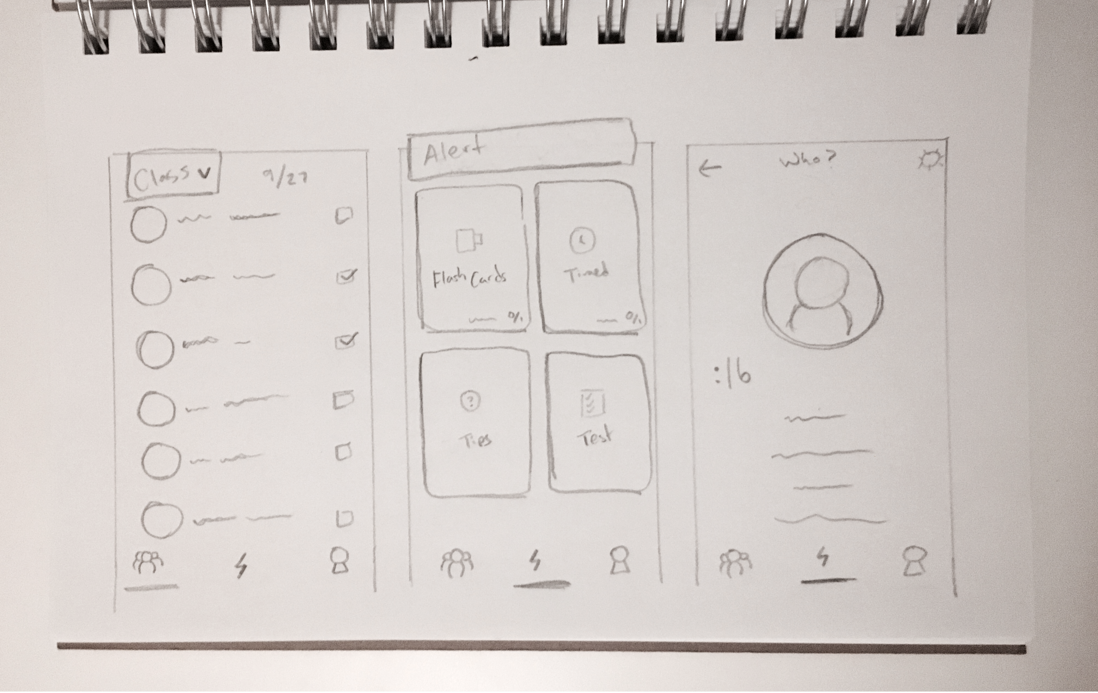 Class 9/27
Alert
Flash Cards
%
Timed
%
Tips
Test
Who?
:16